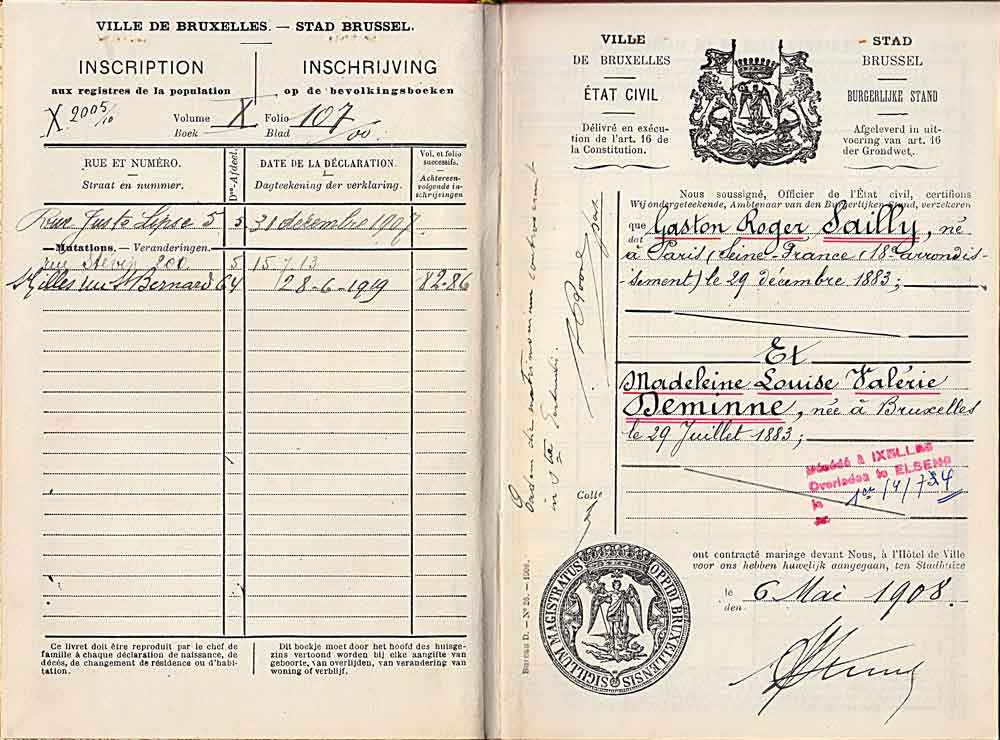 VILLE DE BRUXELLES. — STAD BRUSSEL.
INSCRIPTION
aux registres de la population
INSCHRIJVING
op de bevolkingsboeken
X 2005/10
Volume X Folio 107
Boek Blad
RUE ET NUMÉRO.
Straat en nummer.
Dᵒⁿ-Afdeel.
DATE DE LA DÉCLARATION.
Dagteekening der verklaring.
Vol. et folio
successifs.
Achtereen-
volgende in-
schrijvingen
Rue Juste Lipse 5 5 31 décembre 1907
Mutations. — Veranderingen.
rue Stevin 200 5 15/7/13
St Gilles rue St Bernard 64 28-6-1919 82-86
Ce livret doit être reproduit par le chef de
famille à chaque déclaration de naissance, de
décès, de changement de résidence ou d'habi-
tation.
Dit boekje moet door het hoofd des huisge-
zins vertoond worden bij elke aangifte van
geboorte, van overlijden, van verandering van
woning of verblijf.
VILLE
DE BRUXELLES
ÉTAT CIVIL
Délivré en exécu-
tion de l'art. 16 de
la Constitution.
STAD
BRUSSEL
BURGERLIJKE STAND
Afgeleverd in uit-
voering van art. 16
der Grondwet.
Nous soussigné, Officier de l'État civil, certifions
Wij ondergeteekende, Ambtenaar van den Burgerlijken Stand, verzekeren
que Gaston Roger Sailly, né
dat
à Paris (Seine-France, 18e arrondis-
sement) le 29 décembre 1883;
Et
Madeleine Louise Valérie
Deminne, née à Bruxelles
le 29 Juillet 1883;
Décédé à IXELLES
Overleden te ELSENE
le 1er/4/734
Colle
ont contracté mariage devant Nous, à l'Hôtel de Ville
voor ons hebben huwelijk aangegaan, ten Stadhuize
le 6 Mai 1908.
den
SIGILLUM MAGISTRATUS OPPIDI BRUXELLENSIS
Bureau D. — Nº 25. — 1906.